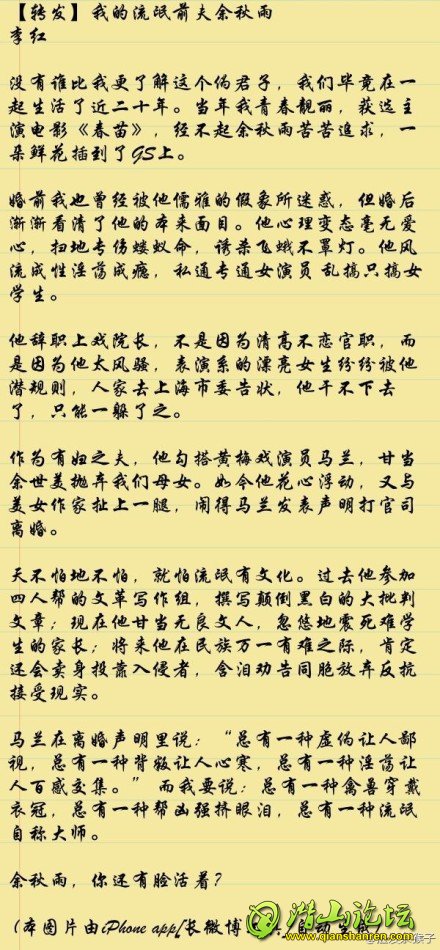 【转发】我的流氓前夫余秋雨
李红
没有谁比我更了解这个伪君子，我们毕竟在一
起生活了近二十年。当年我青春靓丽，获选主
演电影《春苗》，经不起余秋雨苦苦追求，一
朵鲜花插到了GS上。
婚前我也曾经被他儒雅的假象所迷惑，但婚后
渐渐看清了他的本来面目。他心理变态毫无爱
心，扫地专伤蝼蚁命，诱杀飞蛾不罩灯。他风
流成性淫荡成瘾，私通专通女演员 乱搞只搞女
学生。
他辞职上戏院长，不是因为清高不恋官职，而
是因为他太风骚，表演系的漂亮女生纷纷被他
潜规则，人家去上海市委告状，他干不下去
了，只能一躲了之。
作为有妇之夫，他勾搭黄梅戏演员马兰，甘当
余世美抛弃我们母女。如今他花心浮动，又与
美女作家扯上一腿，闹得马兰发表声明打官司
离婚。
天不怕地不怕，就怕流氓有文化。过去他参加
四人帮的文革写作组，撰写颠倒黑白的大批判
文章；现在他甘当无良文人，忽悠地震死难学
生的家长；将来他在民族万一有难之际，肯定
还会卖身投靠入侵者，含泪劝告同胞放弃反抗
接受现实。
马兰在离婚声明里说：“总有一种虚伪让人鄙
视，总有一种背叛让人心寒，总有一种淫荡让
人百感交集。”而我要说：总有一种禽兽穿戴
衣冠，总有一种帮凶强挤眼泪，总有一种流氓
自称大师。
余秋雨，你还有脸活着？
(本图片由iPhone app[长微博
潜山论坛
www.qianshanren.com